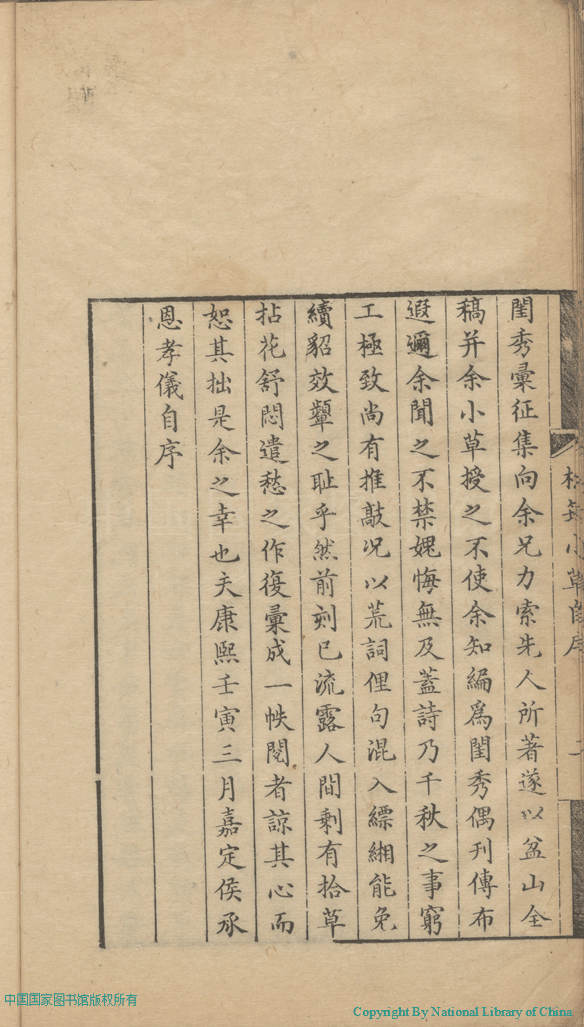 小草自序
閨秀彚征集向余兄力索先人所著遂以盆山全
稿并余小草授之不使余知編爲閨秀偶刊傳布
遐邇余聞之不禁媿悔無及蓋詩乃千秋之事窮
工極致尚有推敲况以荒詞俚句混入縹緗能免
續貂效顰之耻乎然前刻已流露人間剩有拾草
拈花舒悶遣愁之作復彚成一帙閱者諒其心而
恕其拙是余之幸也夫康熙壬寅三月嘉定侯承
恩孝儀自序
中国国家图书馆版权所有
Copyright By National Library of China